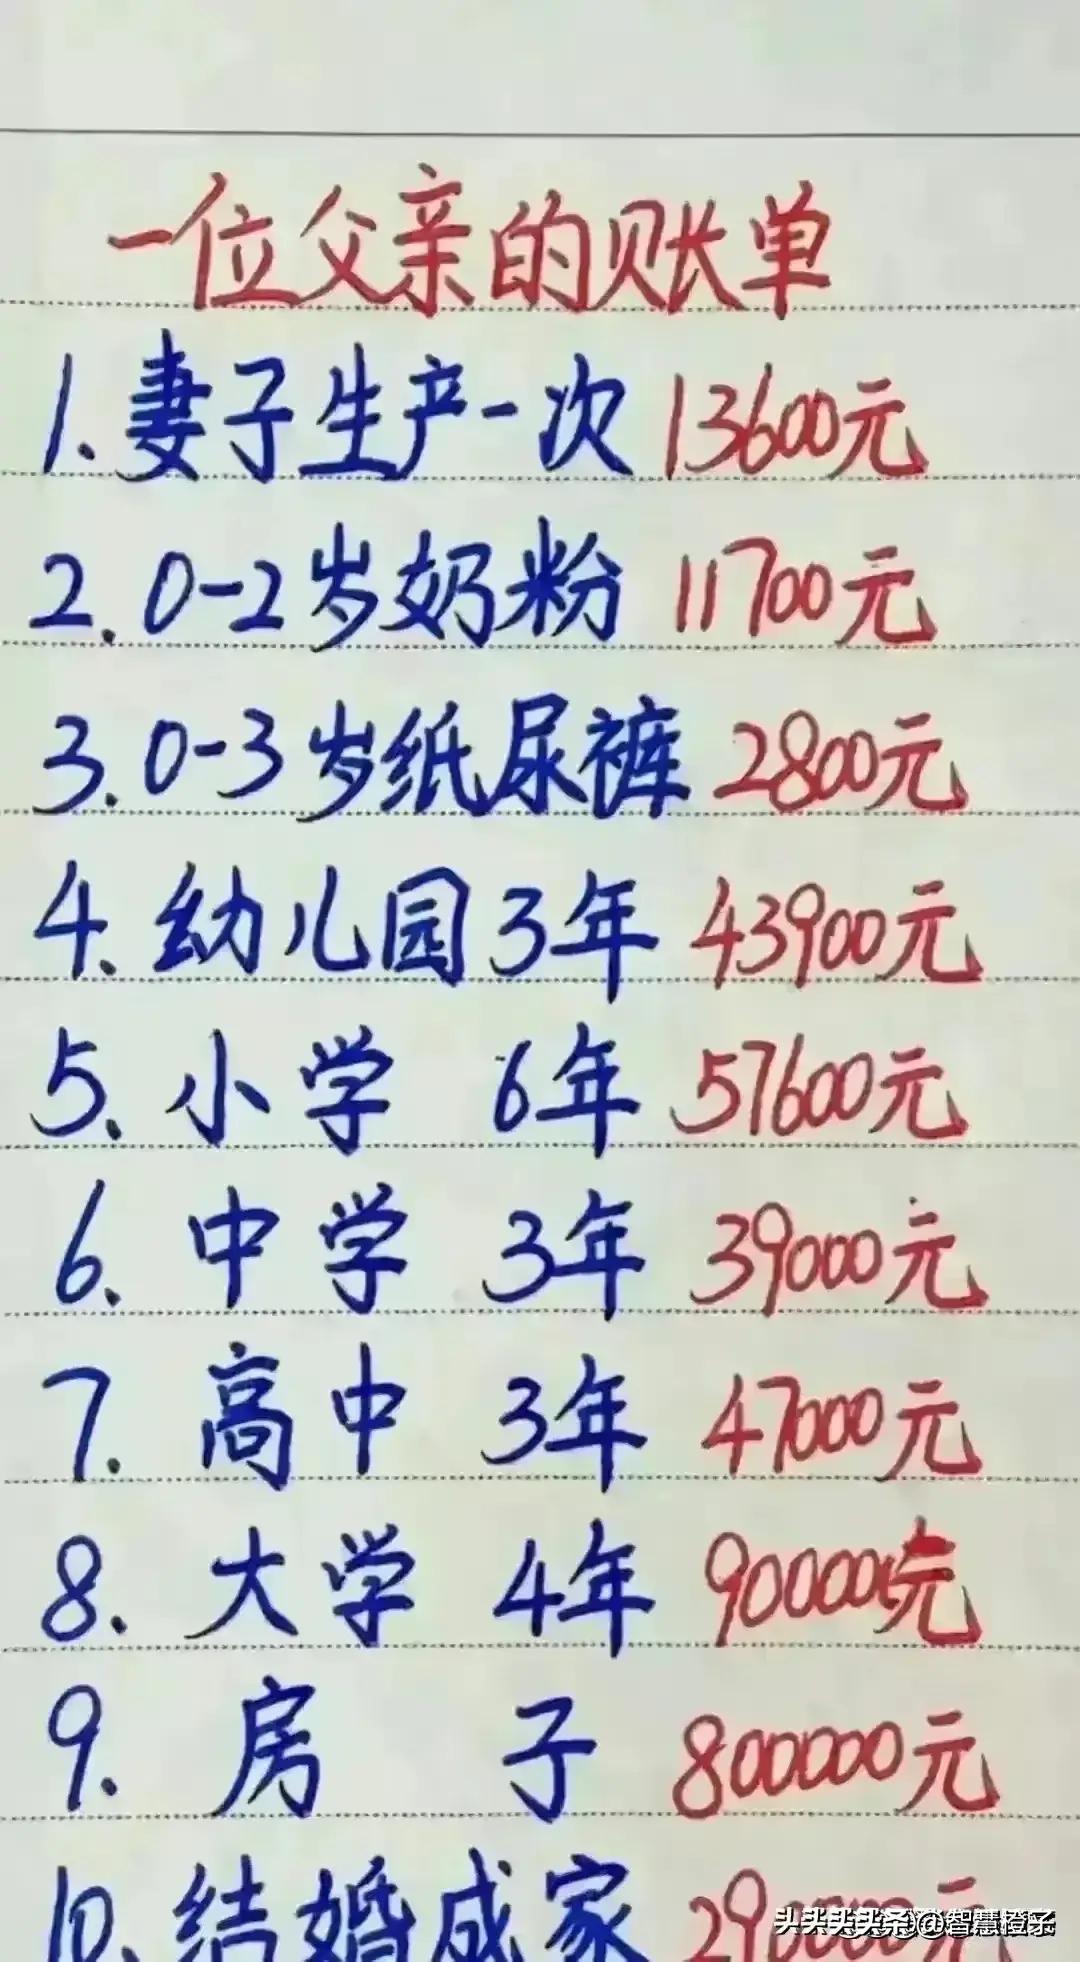 一位父亲的账单
1. 妻子生产一次 13600元
2. 0-2岁奶粉 11700元
3. 0-3岁纸尿裤 2800元
4. 幼儿园3年 43900元
5. 小学 6年 57600元
6. 中学 3年 39000元
7. 高中 3年 47000元
8. 大学 4年 90000元
9. 房子 800000元
10. 结婚成家 290000元
@智慧橙子